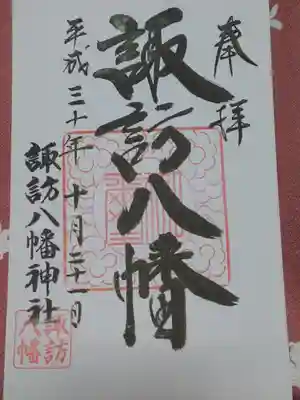 奉拝
諏訪八幡
平成三十年十月二十一日
諏訪八幡神社
諏訪
八幡